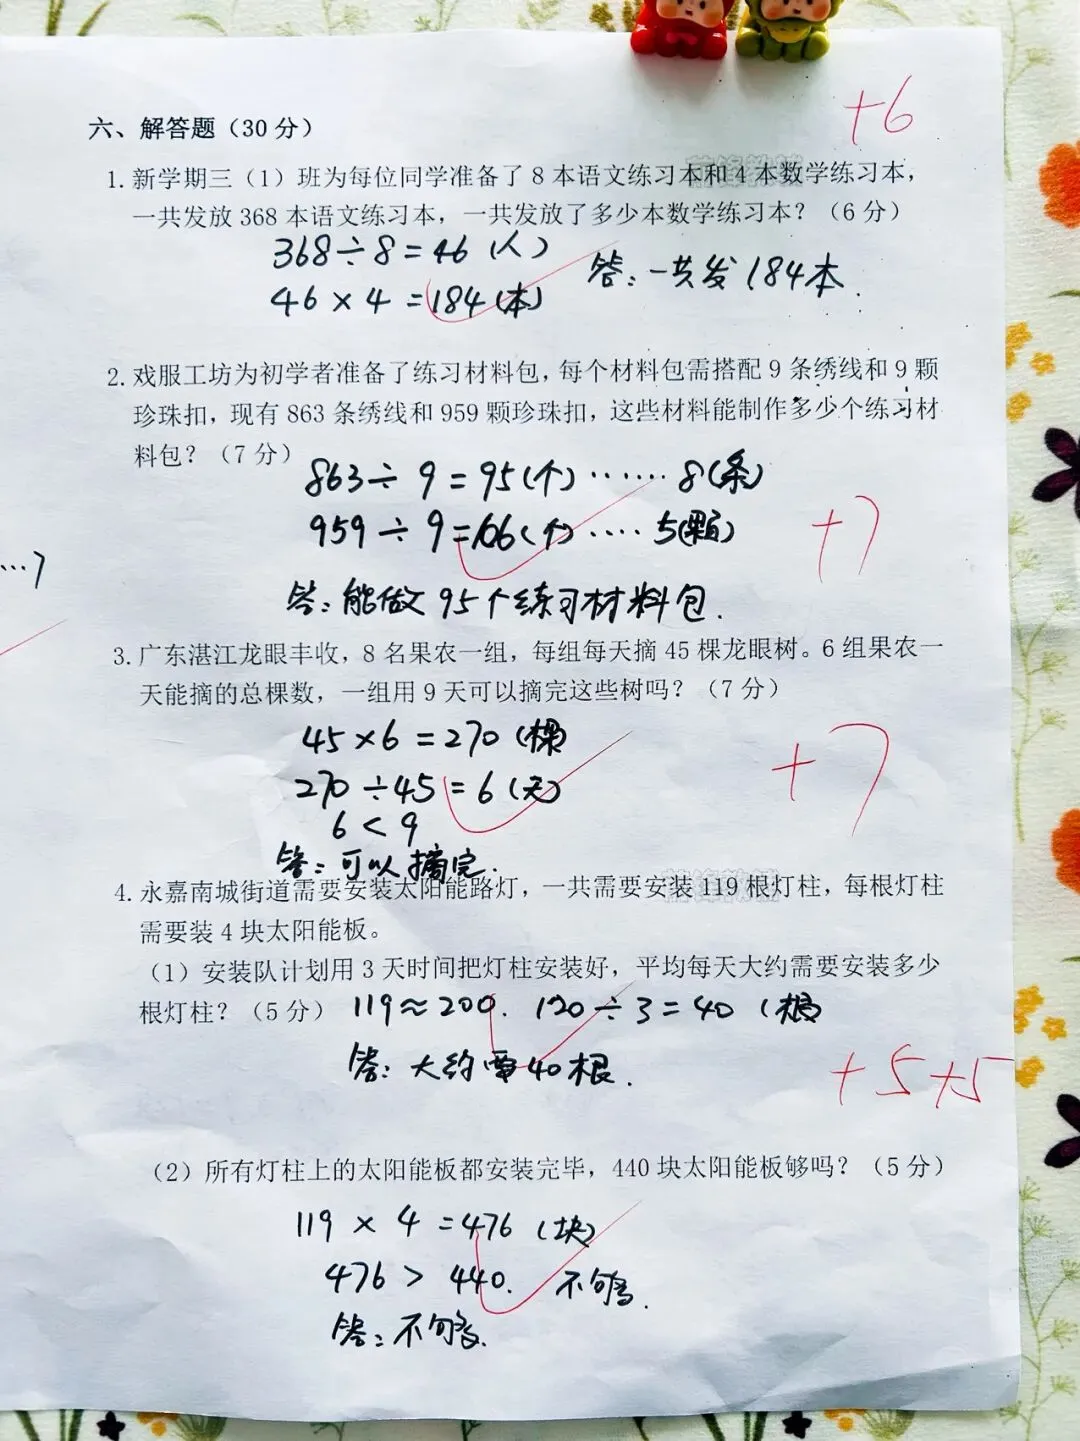 +6
六、解答题（30 分）
1. 新学期三（1）班为每位同学准备了 8 本语文练习本和 4 本数学练习本，
一共发放 368 本语文练习本，一共发放了多少本数学练习本？（6 分）
368÷8=46（人）
46×4=184（本）
答：一共发184本.
2. 戏服工坊为初学者准备了练习材料包，每个材料包需搭配 9 条绣线和 9 颗
珍珠扣，现有 863 条绣线和 959 颗珍珠扣，这些材料能制作多少个练习材
料包？（7 分）
863÷9=95(个)······8(条)
959÷9=106(个)····5(颗)
+7
答：能做95个练习材料包.
…7
3. 广东湛江龙眼丰收，8 名果农一组，每组每天摘 45 棵龙眼树。6 组果农一
天能摘的总棵数，一组用 9 天可以摘完这些树吗？（7 分）
45×6=270（棵）
270÷45=6（天）
6<9
+7
答：可以摘完.
4. 永嘉南城街道需要安装太阳能路灯，一共需要安装 119 根灯柱，每根灯柱
需要装 4 块太阳能板。
（1）安装队计划用 3 天时间把灯柱安装好，平均每天大约需要安装多少
根灯柱？（5 分）
119≈200. 120÷3=40（根）
答：大约需40根.
+5+5
（2）所有灯柱上的太阳能板都安装完毕，440 块太阳能板够吗？（5 分）
119×4=476（块）
476>440. 不够.
答：不够.